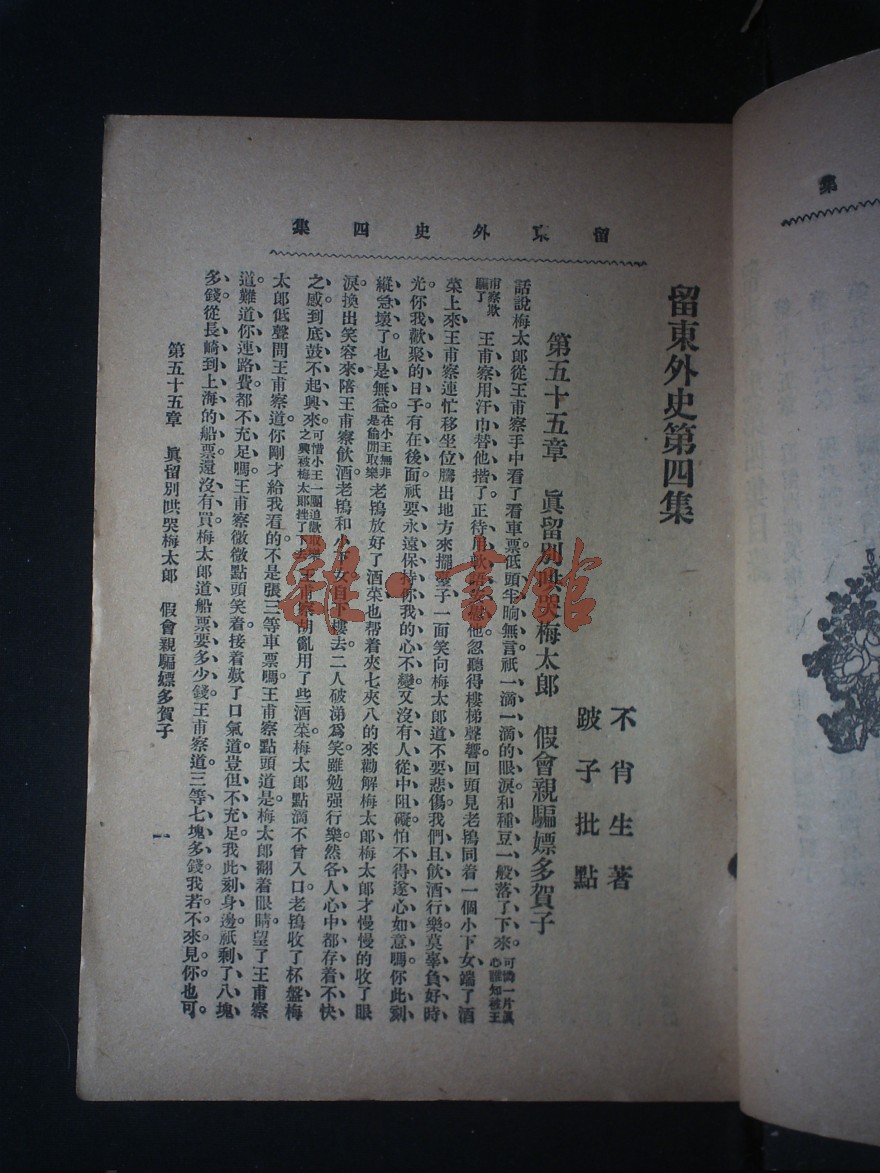 集四史外東留
集
留東外史第四集
不肖生著
跛子批點
第五十五章　眞留別哄哭梅太郎　假會親騙嫖多賀子
話說梅太郎從王甫察手中看了看車票低頭半晌無言祇一滴一滴的眼淚和種豆一般落了下來可憐一片眞心誰知被王
甫察欺騙了王甫察用汗巾替他揩了正待用軟語安慰他忽聽得樓梯聲響回頭見老鴇同着一個小下女端了酒
菜上來王甫察連忙移坐位騰出地方來擺臺子一面笑向梅太郎道不要悲傷我們且飲酒行樂莫辜負好時
光你我歡聚的日子有在後面祇要永遠保持你我的心不變又沒有人從中阻礙怕不得遂心如意嗎你此刻
縱急壞了也是無益。在小王無非是偷閒取樂老鴇放好了酒菜也帮着夾七夾八的來勸解梅太郎梅太郎才慢慢的收了眼
淚換出笑容來陪王甫察飲酒老鴇和小下女自下樓去二人破涕爲笑雖勉强行樂然各人心中都存着不快
之感到底鼓不起興來。可惜小王一團追歡取樂之興被梅太郎挫了下去王甫察胡亂用了些酒菜梅太郎點滴不曾入口老鴇收了杯盤梅
太郎低聲問王甫察道你剛才給我看的不是張三等車票嗎王甫察點頭道是梅太郎翻着眼睛望了王甫察
道難道你連路費都不充足嗎王甫察微微點頭笑着接着歎了口氣道豈但不充足我此刻身邊祇剩了八塊
多錢從長崎到上海的船票還沒有買梅太郎道船票要多少錢王甫察道三等七塊多錢我若不來見你也可。
第五十五章　眞留別哄哭梅太郎　假會親騙嫖多賀子
一
雜·書館